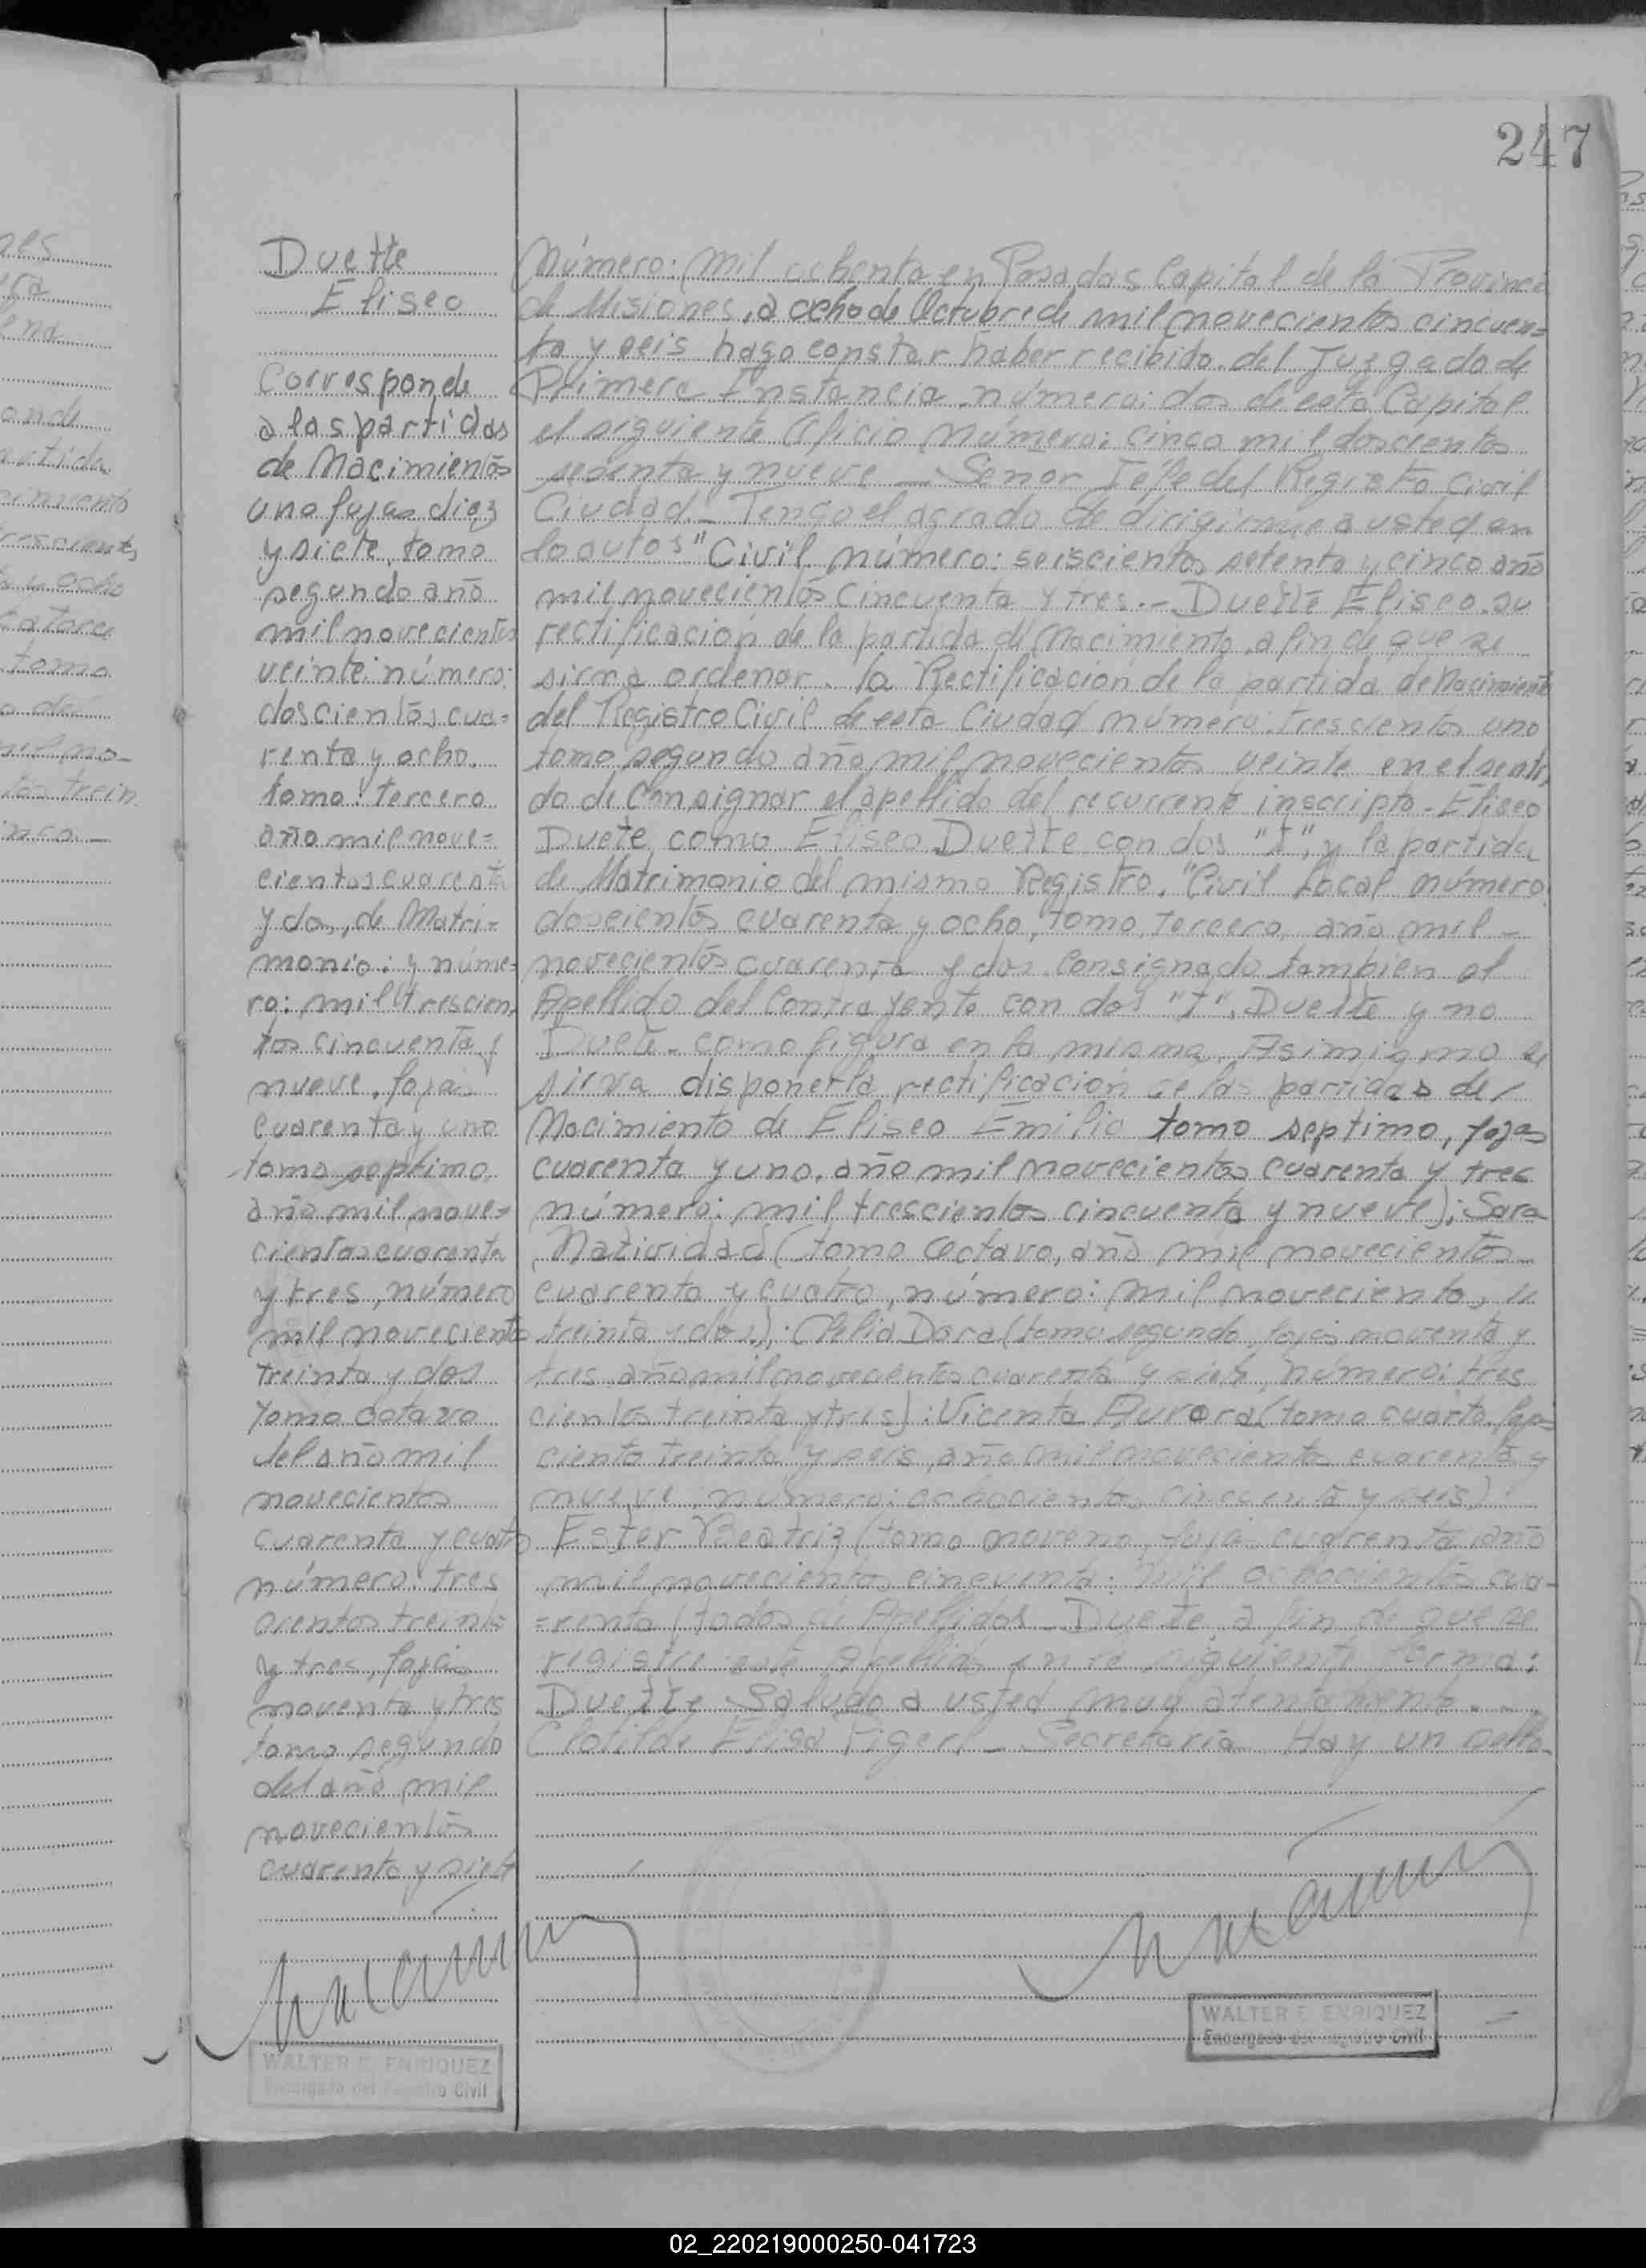 247
Duette
Eliseo
Corresponde
a las partidas
de Nacimientos
uno fojas diez
y siete, tomo
segundo año
mil novecientos
veinte: número:
doscientos cua=
renta y ocho,
tomo: tercero
año mil nove=
cientos cuarenta
y dos, de Matri-
monio: y núme=
ro: mil trescien,
tos cincuenta y
nueve, fojas
cuarenta y uno
tomo septimo
año mil nove=
cientos cuarenta
y tres, número
mil noveciento
treinta y dos
tomo octavo
del año mil
novecientos
cuarenta y cuatro
número: tres
cientos treinta
y tres, foja
noventa y tres
tomo segundo
del año mil
novecientos
cuarenta y siete
WALTER E. ENRIQUEZ
Encargado del Registro Civil
Número: mil ochenta en Posadas Capital de la Provincia
de Misiones, a ocho de Octubre de mil novecientos cincuen=
ta y seis hago constar haber recibido del Juzgado de
Primera Instancia número: dos de esta Capital
el siguiente Oficio número: cinco mil doscientos
sesenta y nueve — Señor Jefe del Registro Civil
Ciudad. — Tengo el agrado de dirigirme a usted en
lo autos "Civil número: seiscientos setenta y cinco año
mil novecientos cincuenta y tres. — Duette Eliseo. su
rectificación de la partida de Nacimiento, a fin de que se
sirva ordenar. la Rectificación de la partida de Nacimiento
del Registro Civil de esta Ciudad número: trescientos uno
tomo segundo año mil novecientos veinte en el senti,
do de Consignar el apellido del recurrente inscripto - Eliseo
Duete como Eliseo Duette con dos "t", y la partida
de Matrimonio del mismo Registro. "Civil Local número
doscientos cuarenta y ocho, tomo tercero, año mil —
novecientos cuarenta y dos. Consignado tambien el
Apellido del Contrayente con dos "t". Duette y no
Duete. como figura en la misma. Asimismo se
sirva disponer la rectificación de las partidas de
Nacimiento de Eliseo Emilio tomo septimo, fojas
cuarenta y uno, año mil novecientos cuarenta y tres
número: mil trescientos cincuenta y nueve); Sara
Natividad (tomo Octavo, año mil novecientos
cuarenta y cuatro, número: mil noveciento,
treinta y dos): Delia Dora (tomo segundo, fojas noventa y
tres, año mil novecientos cuarenta y siete, número: tres
cientos treinta y tres): Vicenta Aurora (tomo cuarto, fojas
ciento treinta y seis, año mil novecientos cuarenta y
nueve, número: ochocientos cincuenta y seis):
Ester Beatriz (tomo noveno, foja cuarenta año
mil novecientos cincuenta: mil ochocientos cua-
=renta (todos de Apellidos Duete, a fin de que se
registre este Apellido en la siguiente forma:
Duette. Saludo a usted muy atentamente. -
Clotilde Elisa - Secretaria. Hay un sello.
WALTER E. ENRIQUEZ
Encargado del Registro Civil
02_220219000250-041723